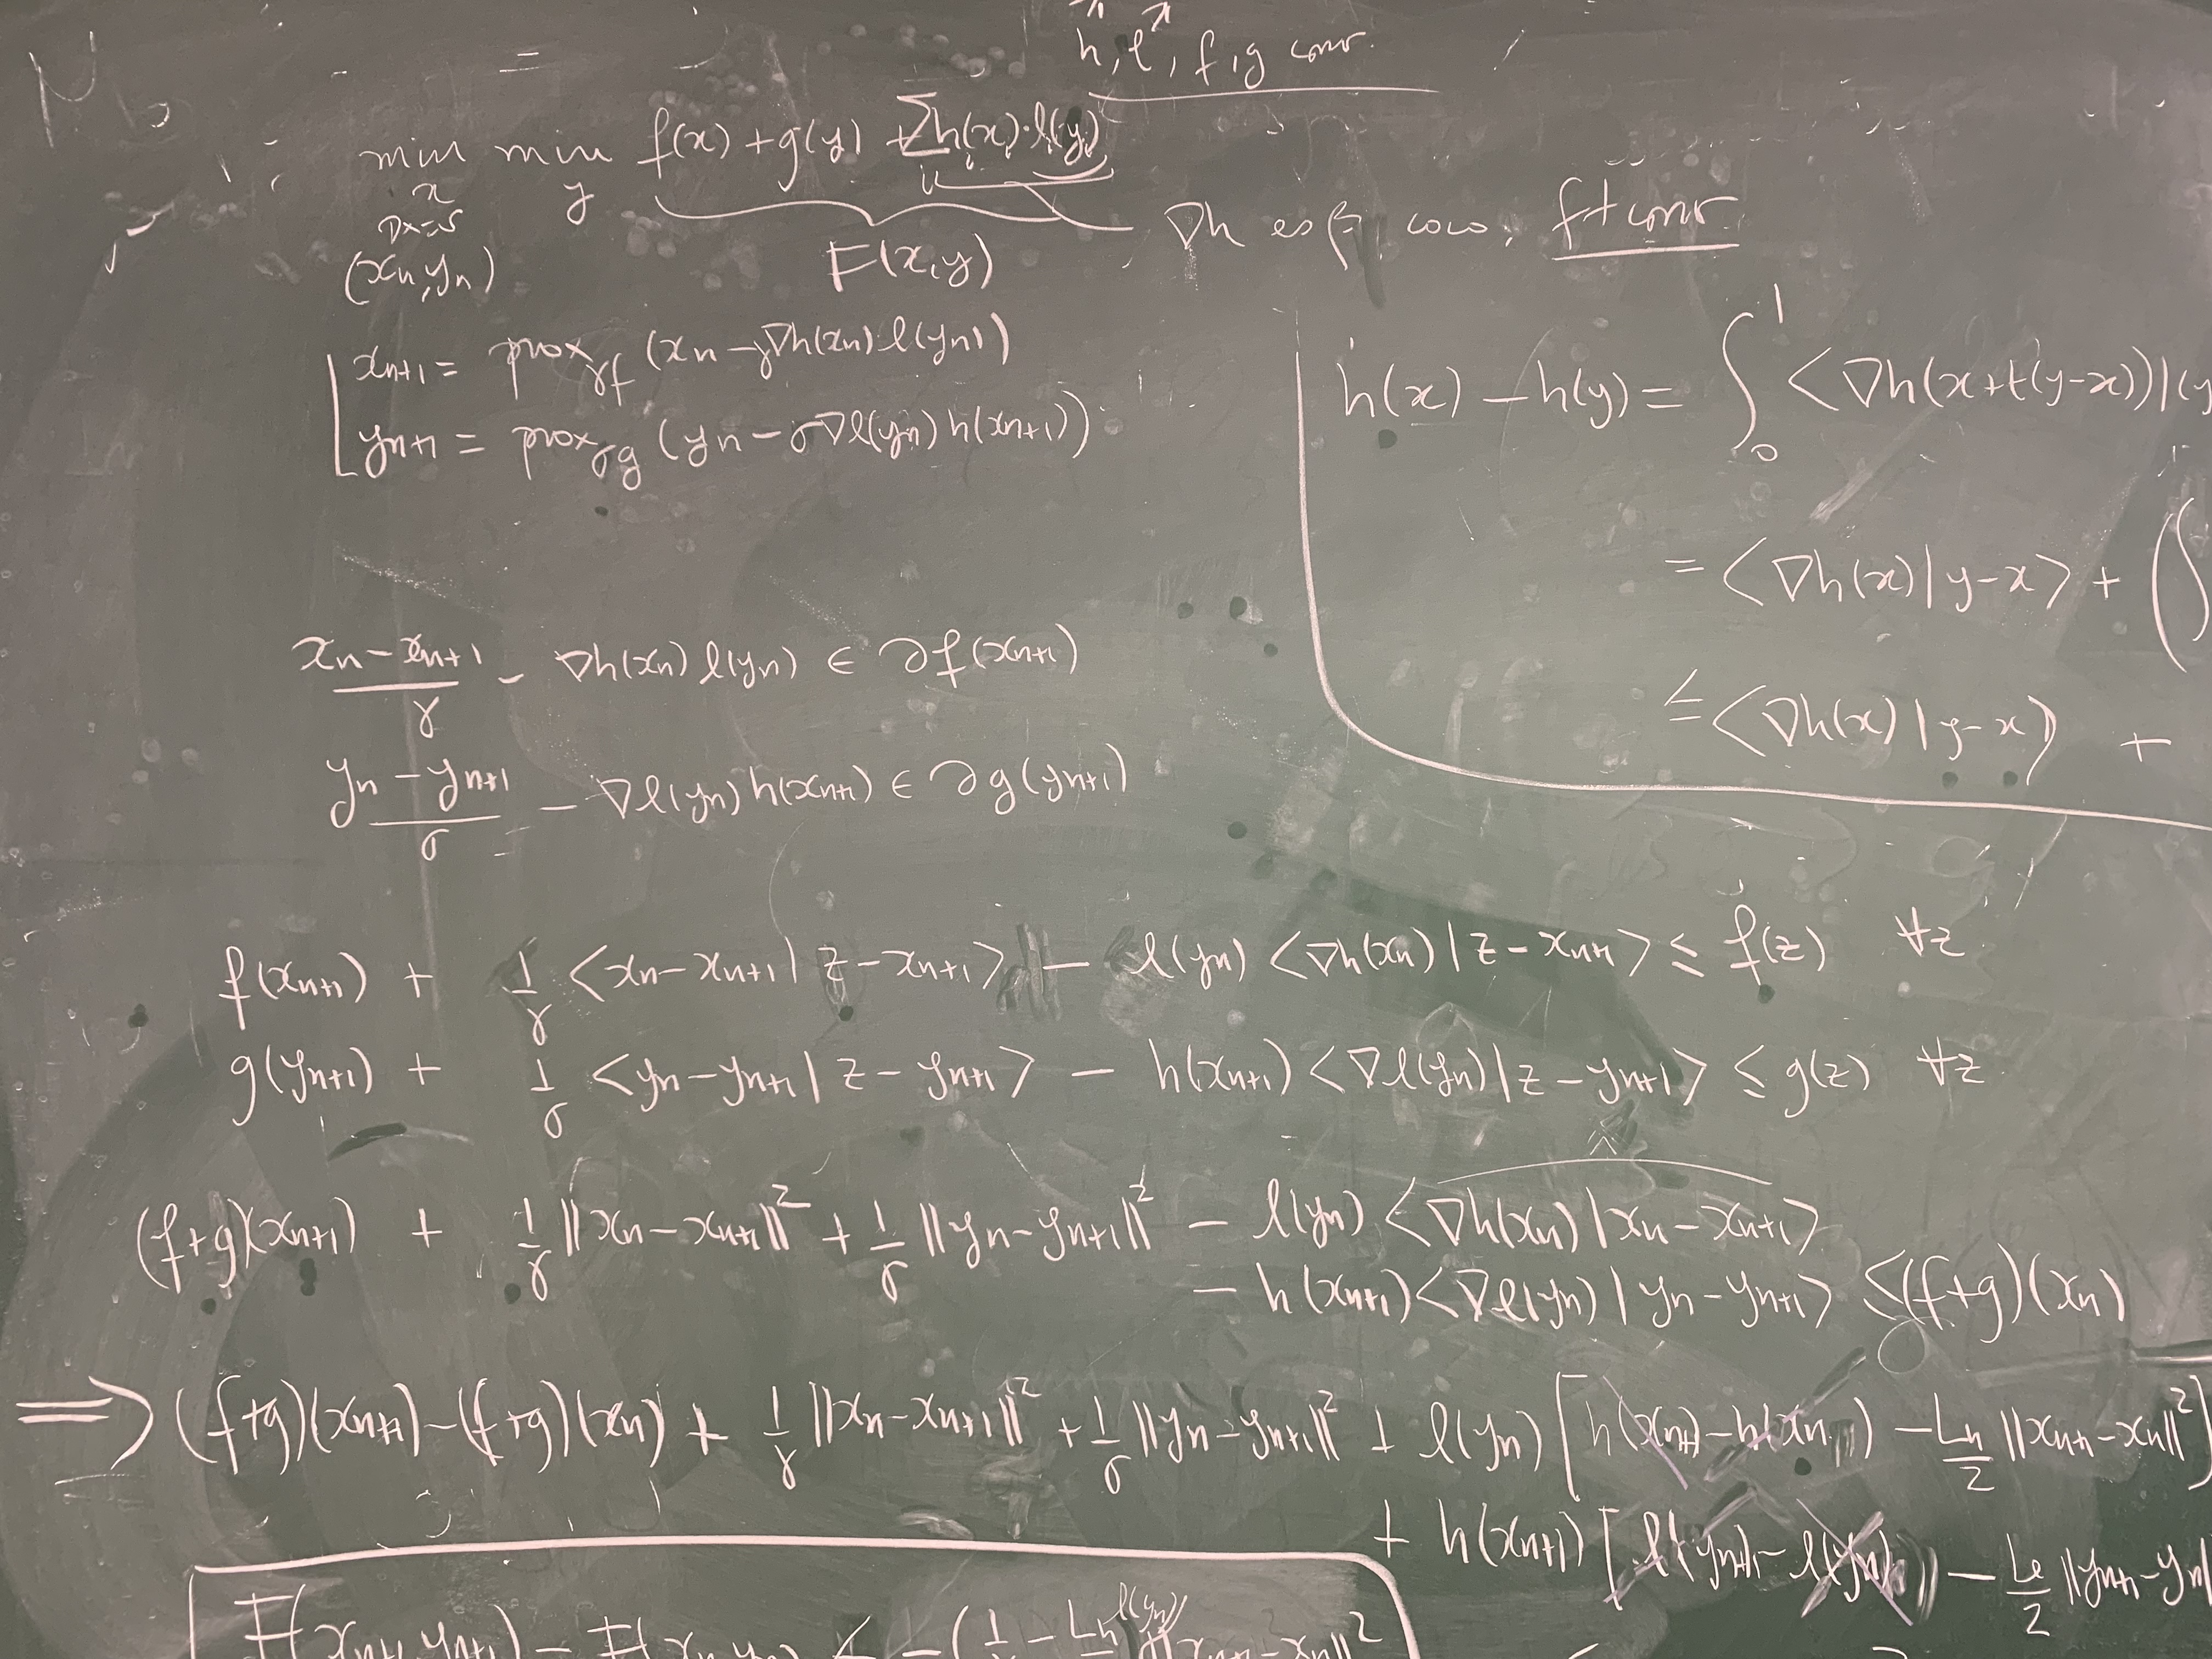 h, l, f, g conv.
min min f(x) + g(y) + Σ h(x)·l(y)
x y
Dx=s
(xn, yn) F(x,y) ∇h es β coco, f + conv.
xn+1 = prox γf (xn − γ∇h(xn) l(yn))
yn+1 = prox σg (yn − σ∇l(yn) h(xn+1))
h(x) − h(y) = ∫₀¹ <∇h(x+t(y−x))|(y
= <∇h(x)|y−x> + (∫
≤ <∇h(x)|y−x> +
(xn − xn+1)/γ − ∇h(xn) l(yn) ∈ ∂f(xn+1)
(yn − yn+1)/σ − ∇l(yn) h(xn+1) ∈ ∂g(yn+1)
f(xn+1) + 1/γ <xn − xn+1 | z − xn+1> − l(yn) <∇h(xn) | z − xn+1> ≤ f(z) ∀z
g(yn+1) + 1/σ <yn − yn+1 | z − yn+1> − h(xn+1) <∇l(yn) | z − yn+1> ≤ g(z) ∀z
(f+g)(xn+1) + 1/γ ||xn − xn+1||² + 1/σ ||yn − yn+1||² − l(yn) <∇h(xn) | xn − xn+1>
− h(xn+1) <∇l(yn) | yn − yn+1> ≤ (f+g)(xn)
⇒ (f+g)(xn+1) − (f+g)(xn) + 1/γ ||xn − xn+1||² + 1/σ ||yn − yn+1||² + l(yn) [h(xn+1) − h(xn) − Lh/2 ||xn+1 − xn||²]
+ h(xn+1) [l(yn+1) − l(yn) − Le/2 ||yn+1 − yn||
F(xn+1, yn+1) − F(xn, yn) ≤ −(1/γ − Lh l(yn)/2) ||xn+1 − xn||²